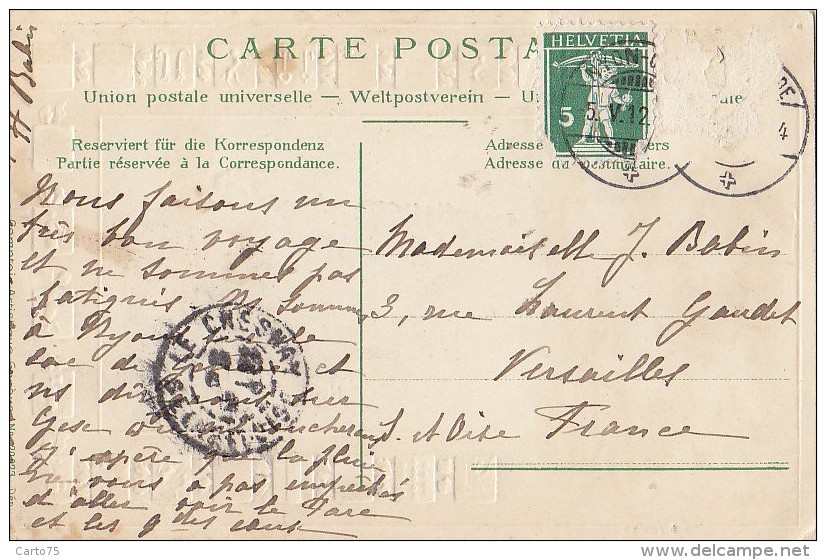 H Babin
CARTE POSTA
HELVETIA
5
5.V.12.
4
Union postale universelle — Weltpostverein — U
Reserviert für die Korrespondenz
Partie réservée à la Correspondance.
Adresse
Adresse du Destinataire.
Nous faisons un
très bon voyage
et ne sommes pas
fatigués Ns sommes
à Nyon
lac de et
ns
Gex où ns coucherons
J'espère que la pluie
ne vous a pas empêchés
d'aller voir le Parc
et les gdes eaux
LE CHESNAY
Mademoiselle J. Babin
3, rue Laurent Gaudet
Versailles
S. et Oise France
Carto75
delcampe.net